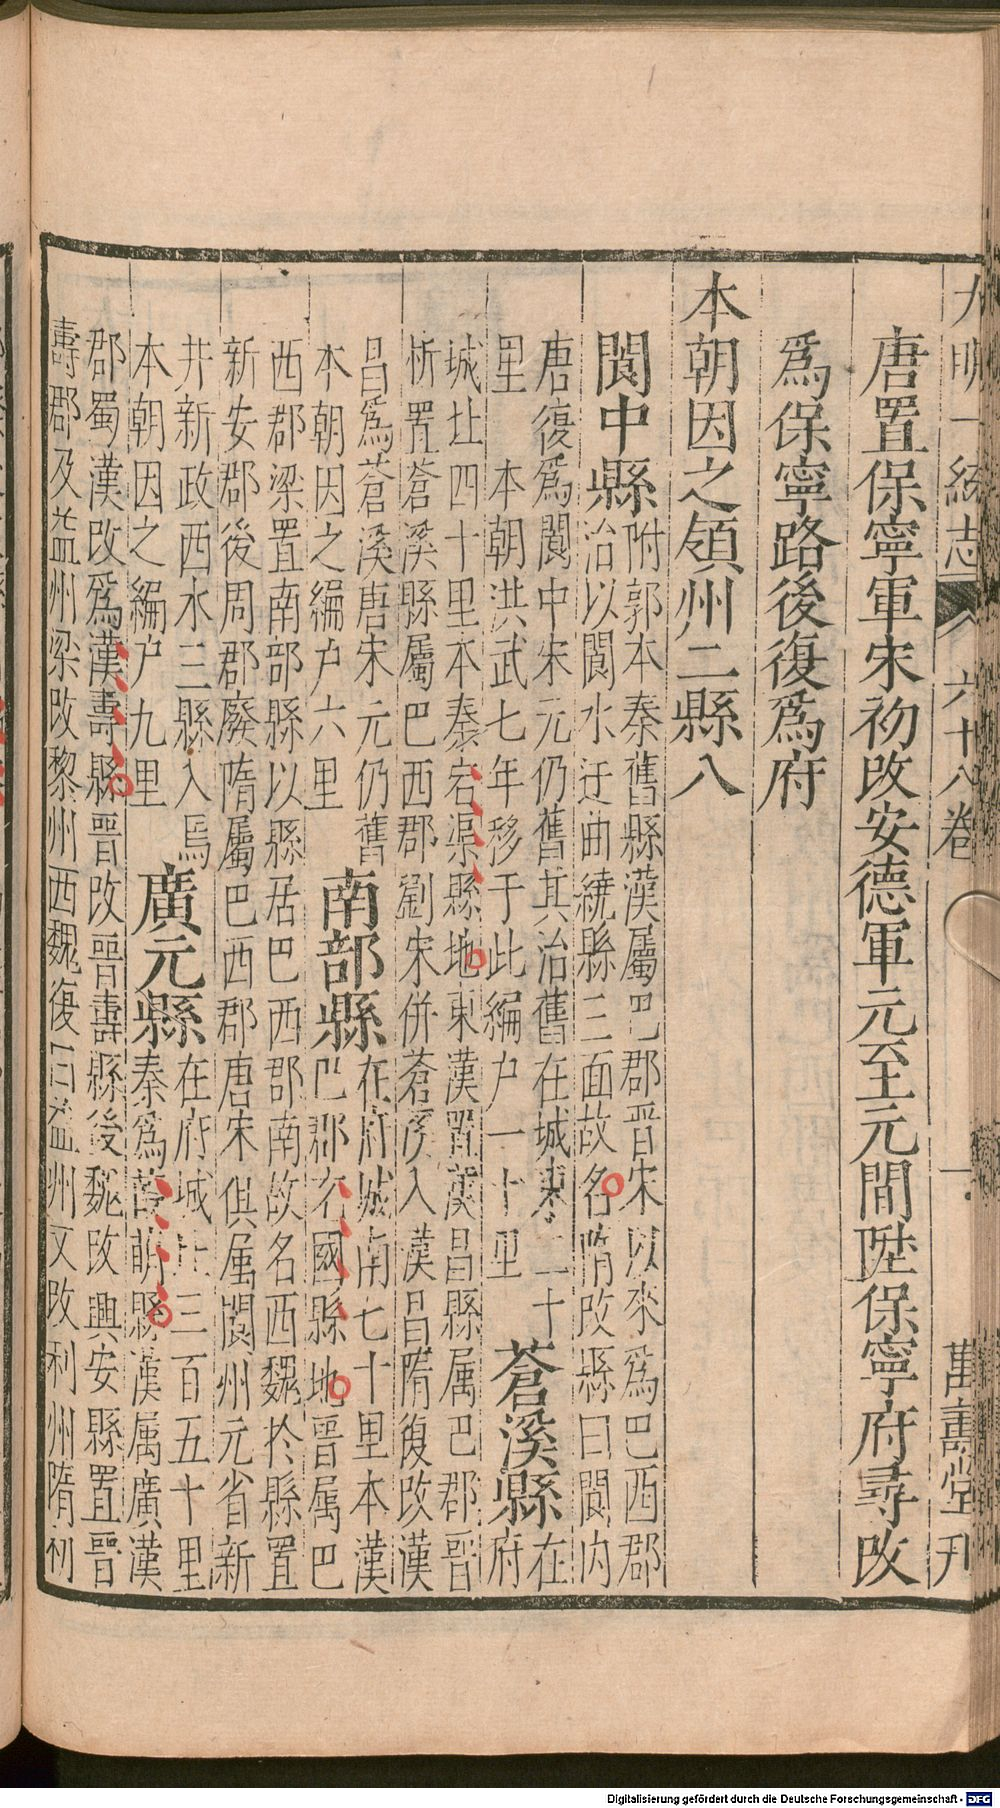 大明一統志 六十八卷 一 萬壽堂刊
唐置保寧軍宋初改安德軍元至元間陞保寧府尋改
為保寧路後復為府
本朝因之領州二縣八
閬中縣
附郭本秦舊縣漢屬巴郡晉宋以來為巴西郡
治以閬水迂曲繞縣三面故名隋改縣曰閬內
唐復為閬中宋元仍舊其治舊在城東二十
里 本朝洪武七年移于此編户一十里
蒼溪縣
在
府
城北四十里本秦宕渠縣地東漢置漢昌縣属巴郡晉
析置蒼溪縣屬巴西郡劉宋併蒼溪入漢昌隋復改漢
昌為蒼溪唐宋元仍舊
本朝因之編户六里
南部縣
在府城南七十里本漢
巴郡充國縣地晉属巴
西郡梁置南部縣以縣居巴西郡南故名西魏於縣置
新安郡後周郡廢隋屬巴西郡唐宋俱属閬州元省新
井新政西水三縣入焉
本朝因之編户九里
廣元縣
在府城北三百五十里
秦為葭萌縣漢属廣漢
郡蜀漢改為漢壽縣晉改晉壽縣後魏改興安縣置晉
壽郡及益州梁改黎州西魏復曰益州又改利州隋初
Digitalisierung gefördert durch die Deutsche Forschungsgemeinschaft - DFG